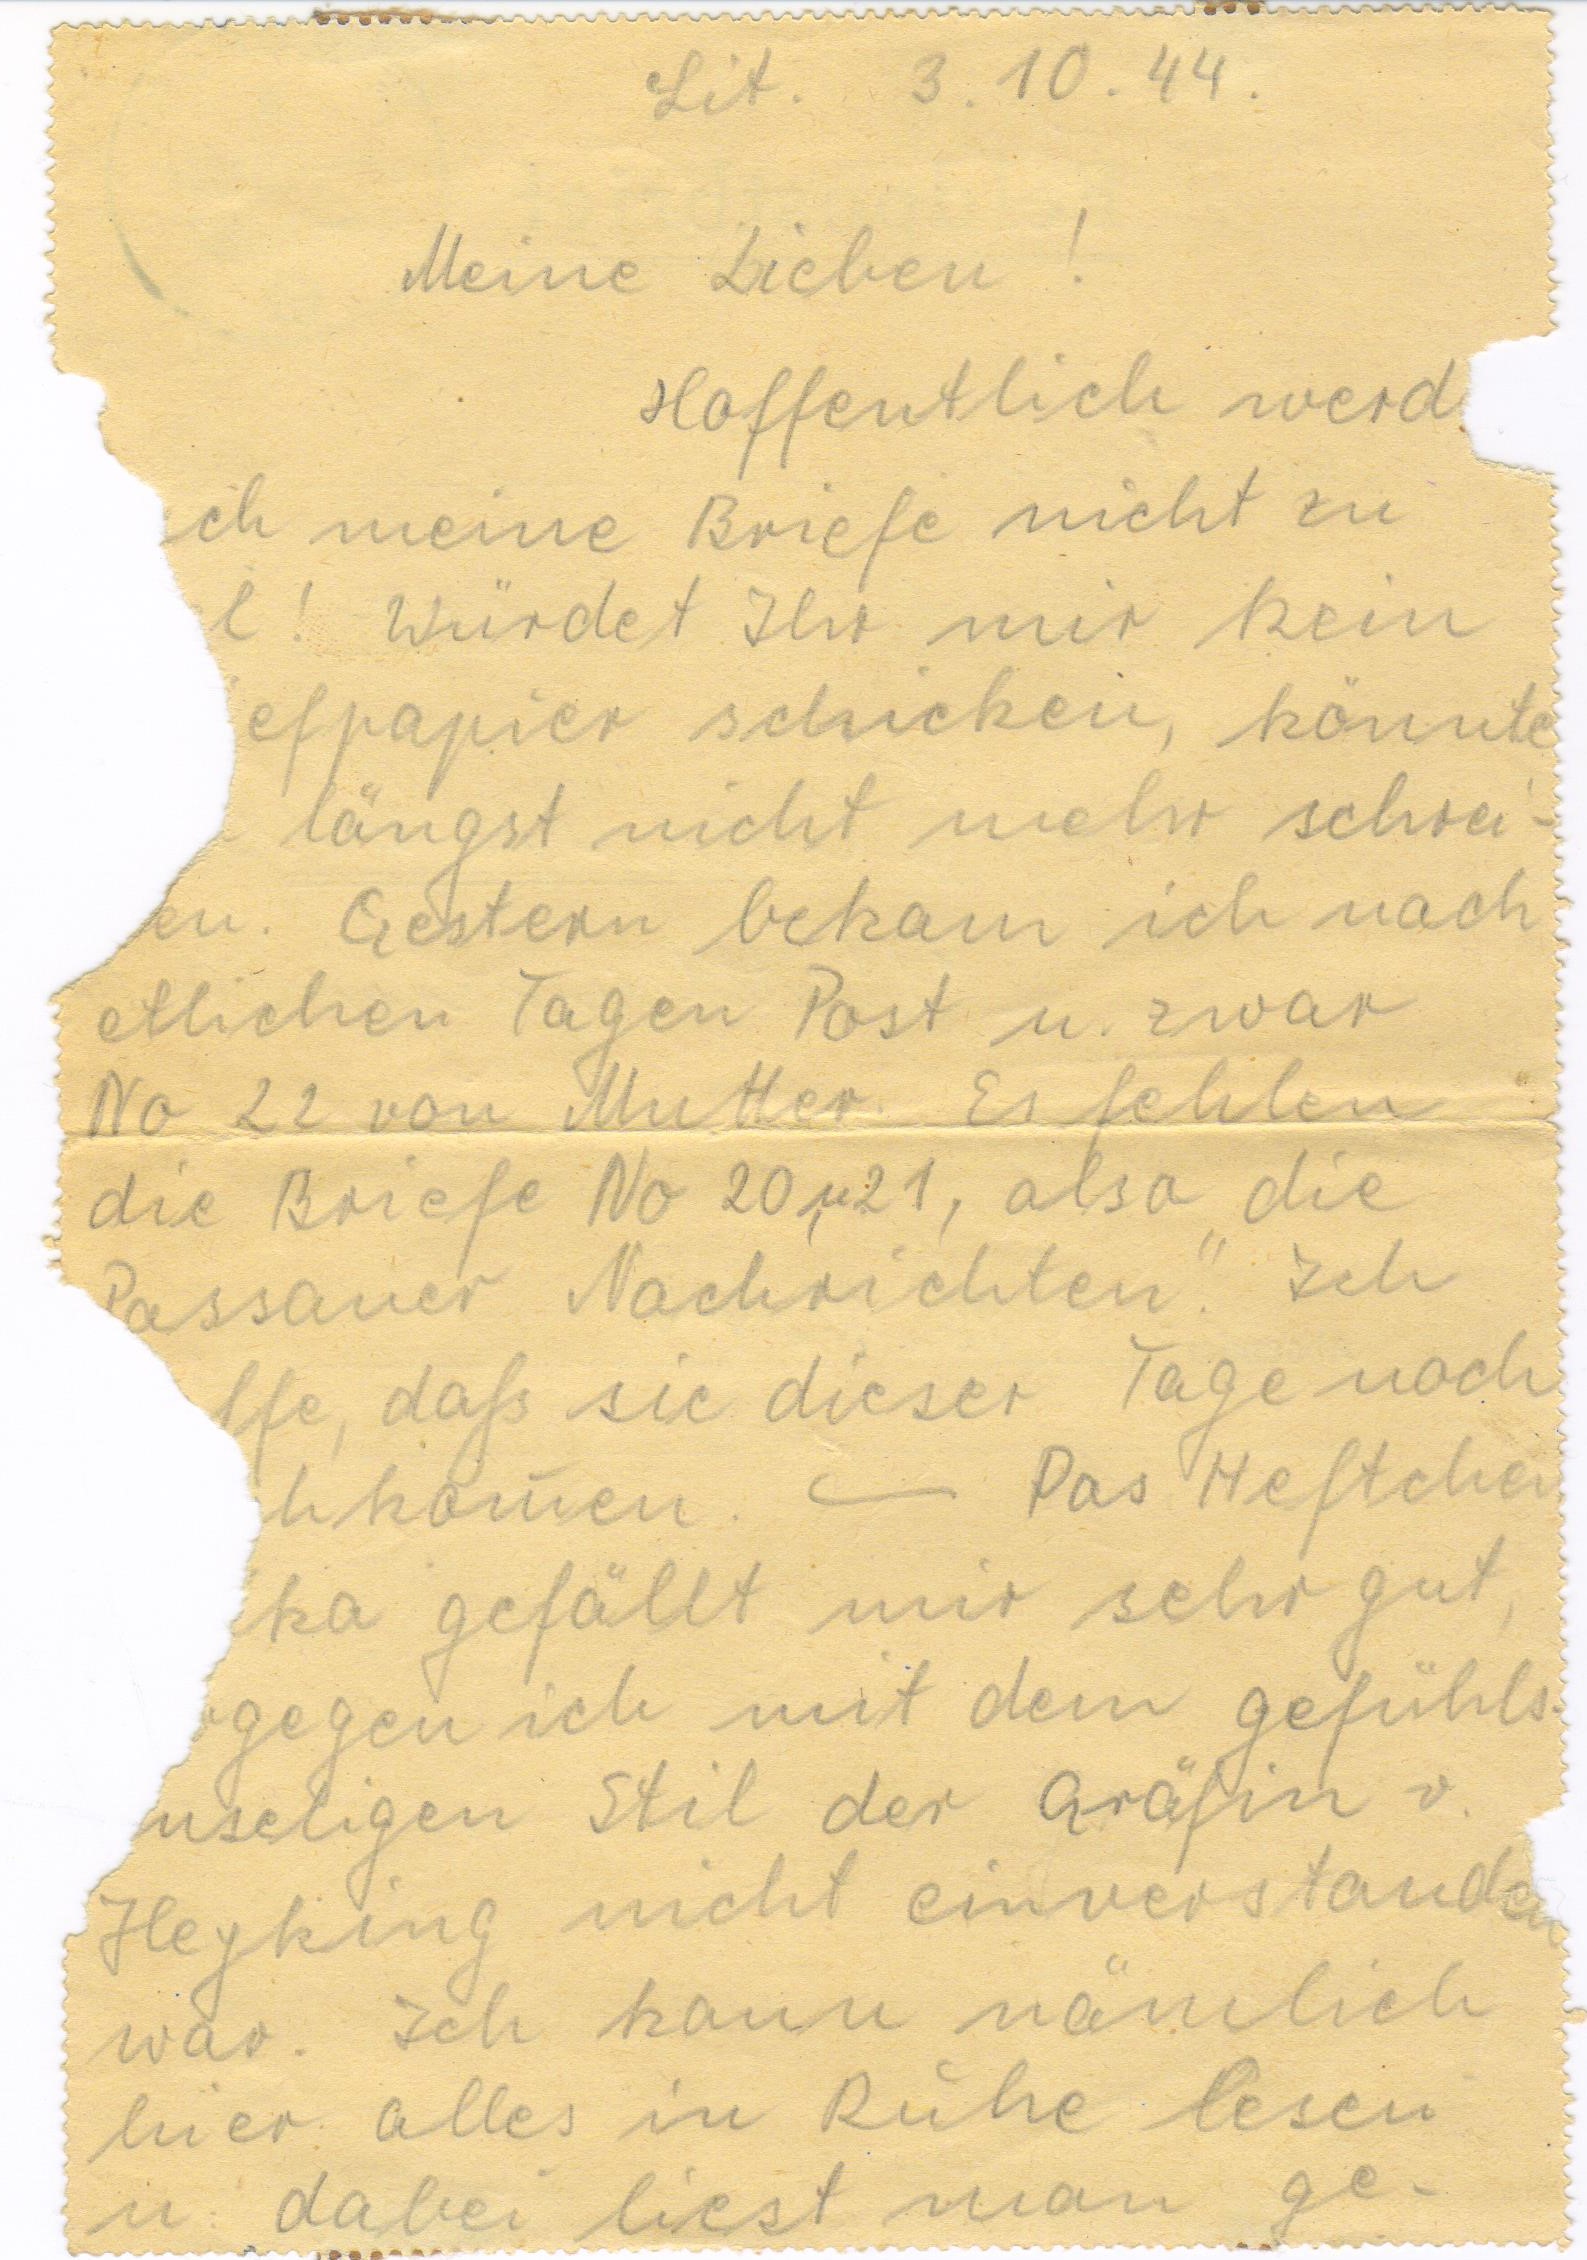 Lit. 3.10.44.
Meine Lieben!
Hoffentlich werd
ch meine Briefe nicht zu
l! Würdet Ihr mir kein
efpapier schicken, könnte
längst nicht mehr schrei-
en. Gestern bekam ich nach
etlichen Tagen Post u. zwar
No 22 von Mutter. Es fehlen
die Briefe No 20 u 21, also die
Passauer "Nachrichten". Ich
ffe, daß sie dieser Tage noch
hkom̄en. — Das Heftchen
ka gefällt mir sehr gut,
gegen ich mit dem gefühls-
useligen Stil der Gräfin v.
Heyking nicht einverstanden
war. Ich kann nämlich
hier alles in Ruhe lesen
u. dabei liest man ge-